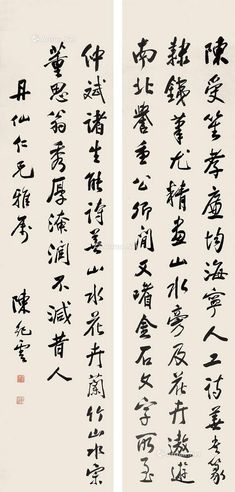 陳受笙孝廉均海寧人工詩善書篆
隸鐵筆尤精畫山水旁及花卉遨遊
南北譽重公卿間又嗜金石文字所至
仲斌諸生能詩善山水花卉蘭竹山水宗
董思翁秀厚淹潤不減昔人
丹仙仁兄雅屬
陳